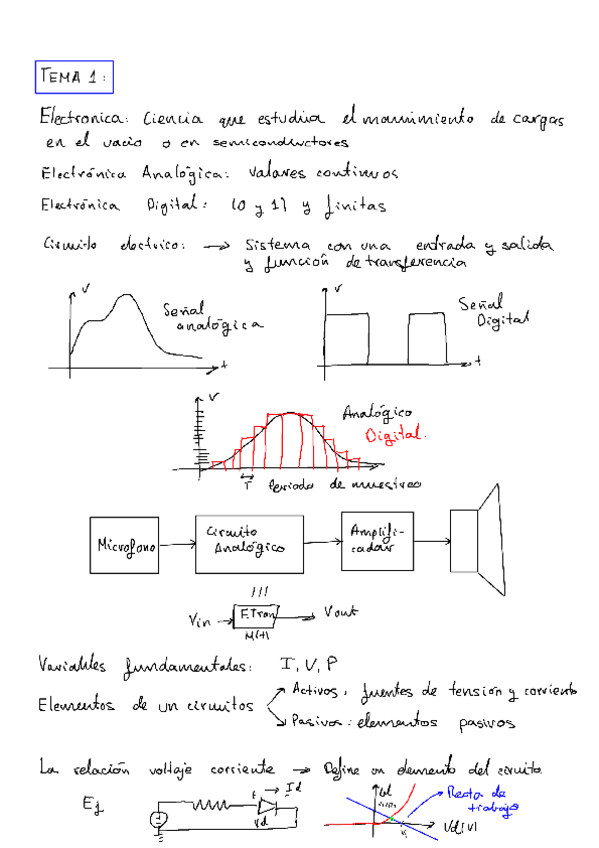 TEMA 1:
Electronica: Ciencia que estudiia el movimimiento de cargas
en el vacio o en semiconductores
Electrónica Analógica: Valores continuos
Electrónica Digital: (0 y 1) y finitas
Circuito electrico: → Sistema con una entrada y salida
y función de transferencia
V
Señal
analógica
t
V
Señal
Digital
t
V
Analógico
Digital.
T Periodo de muestreo
Microfono
Circuito
Analógico
Amplifi-
cador
Vin → F.Tran → Vout
Variables fundamentales: I, V, P
Elementos de un circuitos
Activos: fuentes de tensión y corriente
Pasivos: elementos pasivos
La relación voltaje corriente → Define un elemento del circuito.
Ej
+ → Id
Vd
Id
Recta de
trabajo
Vd(V)